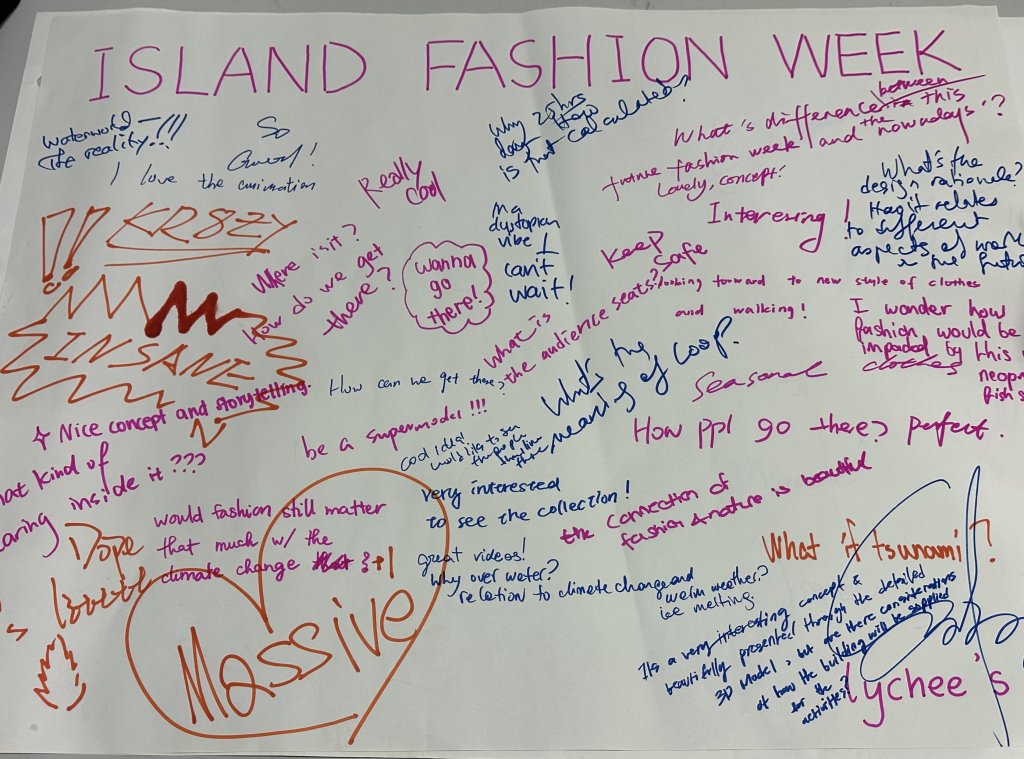 ISLAND FASHION WEEK
Waterworld –
The reality..!!!
So
Good!
I love the animation
Really
Cool
Why 25hrs
day
is that calculated?
between
What's difference this
future fashion week and the nowadays'?
Lovely, concept!
Interesing!
What's the
design rationale?
Has it relates
to different
aspects of world
in the future
!! KR8ZY
INSANE
Where is it?
How do we get
there?
wanna
go
there!
dystopian
vibe!
can't
wait!
Keep
Safe
looking forward to new style of clothes
and walking!
What is
the audience seats?
I wonder how
fashion, would be
impacted by this
clothes
neopr
fish s
What's the
meaning of coop?
Seasonal
How ppl go there? perfect.
Nice concept and storytelling.
How can we get there?
be a supermodel!!!
cool idea!
would like to see
the people
they live
there
hat kind of
earing inside it???
very interested
to see the collection!
the connection of
fashion & nature is beautiful
Dope
would fashion still matter
that much w/ the
climate change +1
great videos!
Why over water?
relation to climate change and
warm weather?
ice melting.
What if tsunami?
Massive
Its a very interesting concept &
beautifully presented through the detailed
3D Model, but are there considerations
of how the building will be supplied
for the
activities?
lychee's